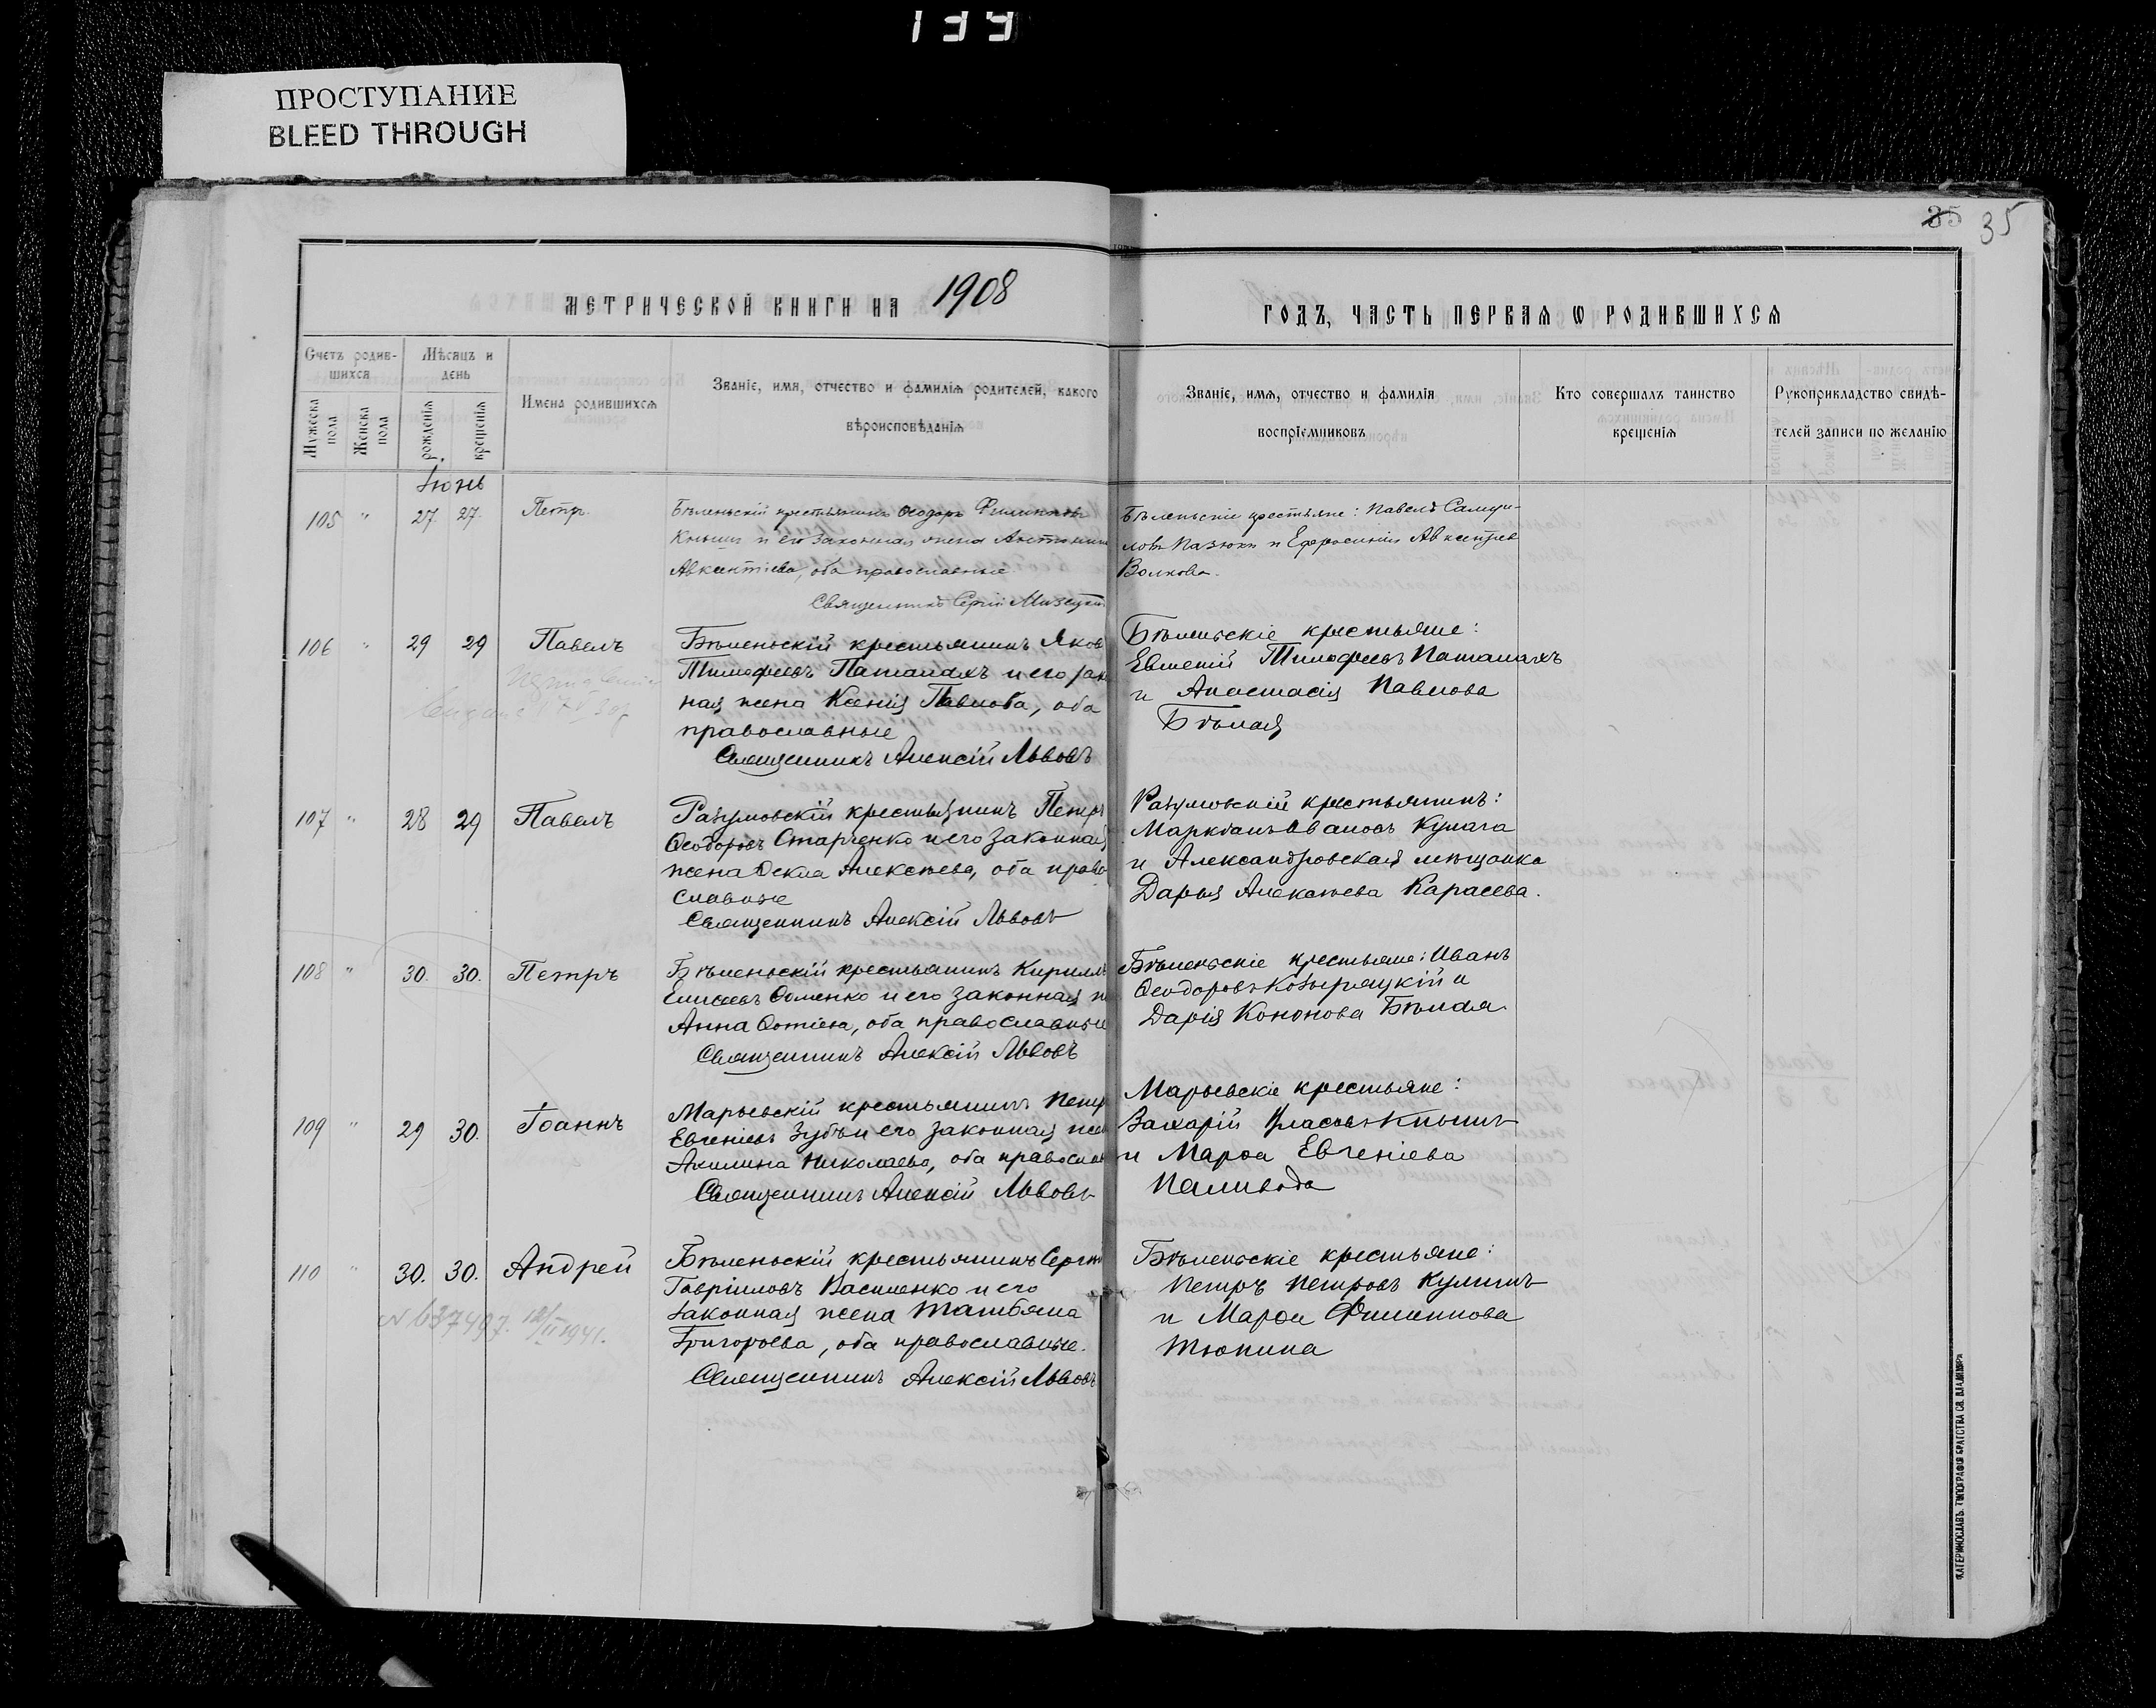 133
ПРОСТУПАНИЕ
BLEED THROUGH
35 35
МЕТРИЧЕСКОЙ КНИГИ НА 1908 ГОДЪ, ЧАСТЬ ПЕРВАЯ Ѡ РОДИВШИХСЯ
Счетъ родив-
шихся
Мѣсяцъ и
день
Мужеска
пола
Женска
пола
рожденія
крещенія
Имена родившихся
Званіе, имя, отчество и фамилія родителей, какого
вѣроисповѣданія
Званіе, имя, отчество и фамилія
воспріемниковъ
Кто совершалъ таинство
крещенія
Рукоприкладство свидѣ-
телей записи по желанію
Іюнь
105 " 27. 27. Петръ
Бѣленьскій крестьянинъ Ѳеодоръ Филипповъ
и его законная жена
Авксентіева, оба православные.
Священникъ Сергій
Бѣленьскіе крестьяне: Павелъ Самуи-
ловъ и Евфросинія Авксентіева
Волкова.
106 " 29 29 Павелъ
Бѣленьскій крестьянинъ Яковъ
Тимофеевъ Паталахъ и его закон
ная жена Ксенія Павлова, оба
православные
Священникъ Алексій Львовъ
Бѣленьскіе крестьяне:
Евгеній Тимофеевъ Паталахъ
и Анастасія Павлова
Бѣлая
107 " 28 29 Павелъ
Разумовскій крестьянинъ Петръ
Ѳеодоровъ Старченко и его законная
жена Ѳекла Алексѣева, оба право
славные
Священникъ Алексій Львовъ
Разумовскій крестьянинъ:
Маркіанъ Ивановъ Кулага
и Александровская мѣщанка
Дарья Алексѣева Карасева.
108 " 30. 30. Петръ
Бѣленьскій крестьянинъ Кириллъ
Елисеевъ Ѳоменко и его законная ж
Анна Ѳотіева, оба православные
Священникъ Алексій Львовъ
Бѣленьскіе крестьяне: Иванъ
Ѳеодоровъ Козыряцкій и
Дарія Кононова Бѣлая
109 " 29 30. Іоаннъ
Марьевскій крестьянинъ Петръ
Евгеніевъ Зубъ и его законная жен
Акилина Николаева, оба православ
Священникъ Алексій Львовъ
Марьевскіе крестьяне:
Захарій Власовъ
и Марѳа Евгеніева
Паливода
110 " 30. 30. Андрей
№ 637497. 12/II 1941.
Бѣленьскій крестьянинъ Сергій
Гавріиловъ Василенко и его
законная жена Татіана
Григорьева, оба православные.
Священникъ Алексій Львовъ
Бѣленьскіе крестьяне:
Петръ Петровъ Кулишъ
и Марѳа Филиппова
Тюпина
ЕКАТЕРИНОСЛАВЪ. ТИПОГРАФІЯ БРАТСТВА СВ. ВЛАДИМІРА